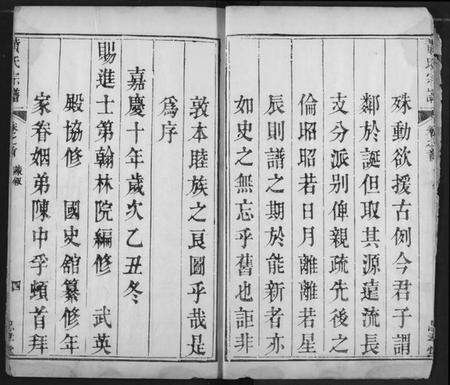 殊動欲援古例今君子謂
鄰於誕但取其源遠流長
支分派别俾親疏先後之
倫昭昭若日月離離若星
辰則譜之期於能新者亦
如史之無忘乎舊也詎非
敦本睦族之良圖乎哉是
爲序
嘉慶十年歲次乙丑冬
賜進士第翰林院編修 武英
殿協修 國史舘纂修年
家眷姻弟陳中孚頓首拜
黄氏宗譜 卷之首 四